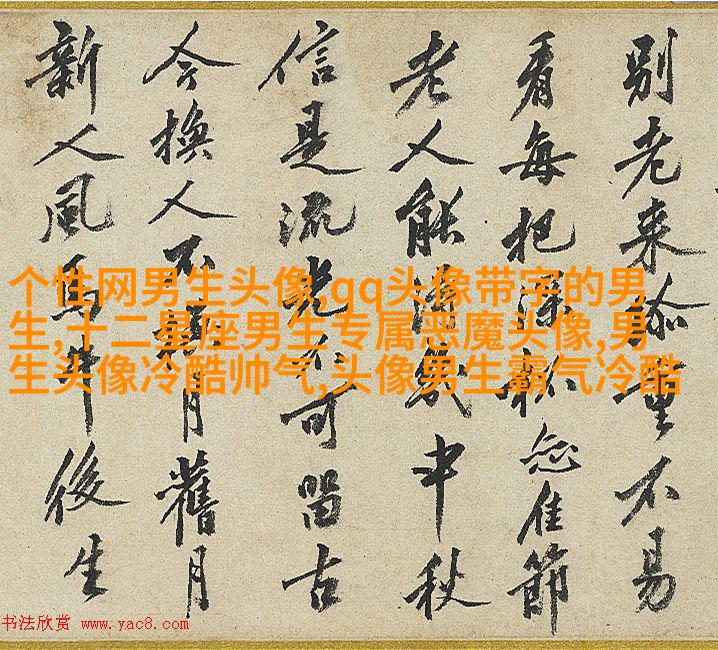 别老来添重不易
看每把深杯佳節
老人能幾中秋
信是流光不可留古
今換人不換月舊月
新人風馬牛後生
个性网男生头像,qq头像带字的男
生,十二星座男生专属恶魔头像,男
生头像冷酷帅气,头像男生霸气冷酷
书法欣赏 www.yac8.com